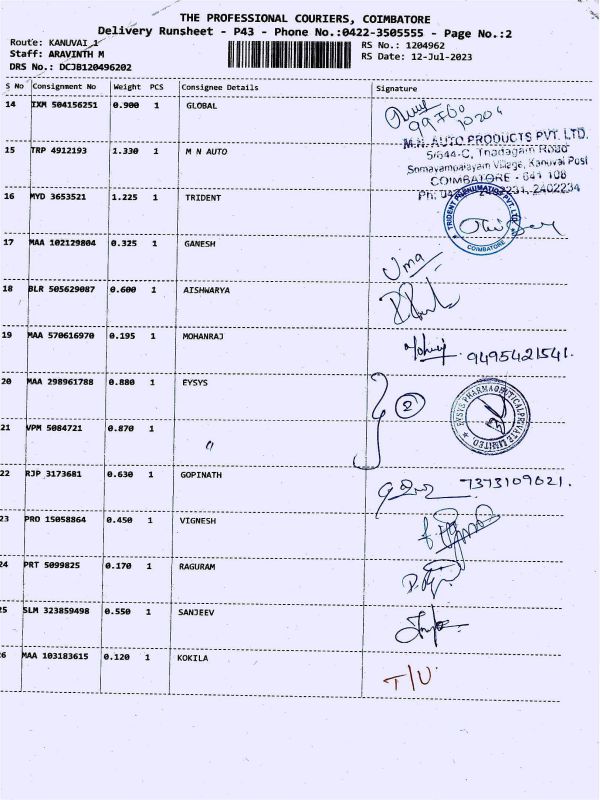 THE PROFESSIONAL COURIERS, COIMBATORE
Delivery Runsheet - P43 - Phone No.:0422-3505555 - Page No.:2
Route: KANUVAI 1
RS No.: 1204962
Staff: ARAVINTH M
RS Date: 12-Jul-2023
DRS No.: DCJB120496202
S No Consignment No Weight PCS Consignee Details Signature
14 IXM 504156251 0.900 1 GLOBAL
15 TRP 4912193 1.330 1 M N AUTO
M.N. AUTO PRODUCTS PVT. LTD.
5/644-C, Thadagam Road
Somayampalayam Village, Kanuvai Post
COIMBATORE - 641 108
2402234
16 MYD 3653521 1.225 1 TRIDENT
TRIDENT PNEUMATICS PVT. LTD.
COIMBATORE
17 MAA 102129804 0.325 1 GANESH
Uma
18 BLR 505629087 0.600 1 AISHWARYA
19 MAA 570616970 0.195 1 MOHANRAJ
9495421541.
20 MAA 298961788 0.880 1 EYSYS
2
PHARMACEUTICAL PRIVATE LIMITED
21 VPM 5084721 0.870 1 "
22 RJP 3173681 0.630 1 GOPINATH
7373109021.
23 PRO 15058864 0.450 1 VIGNESH
24 PRT 5099825 0.170 1 RAGURAM
25 SLM 323859498 0.550 1 SANJEEV
26 MAA 103183615 0.120 1 KOKILA
T/U